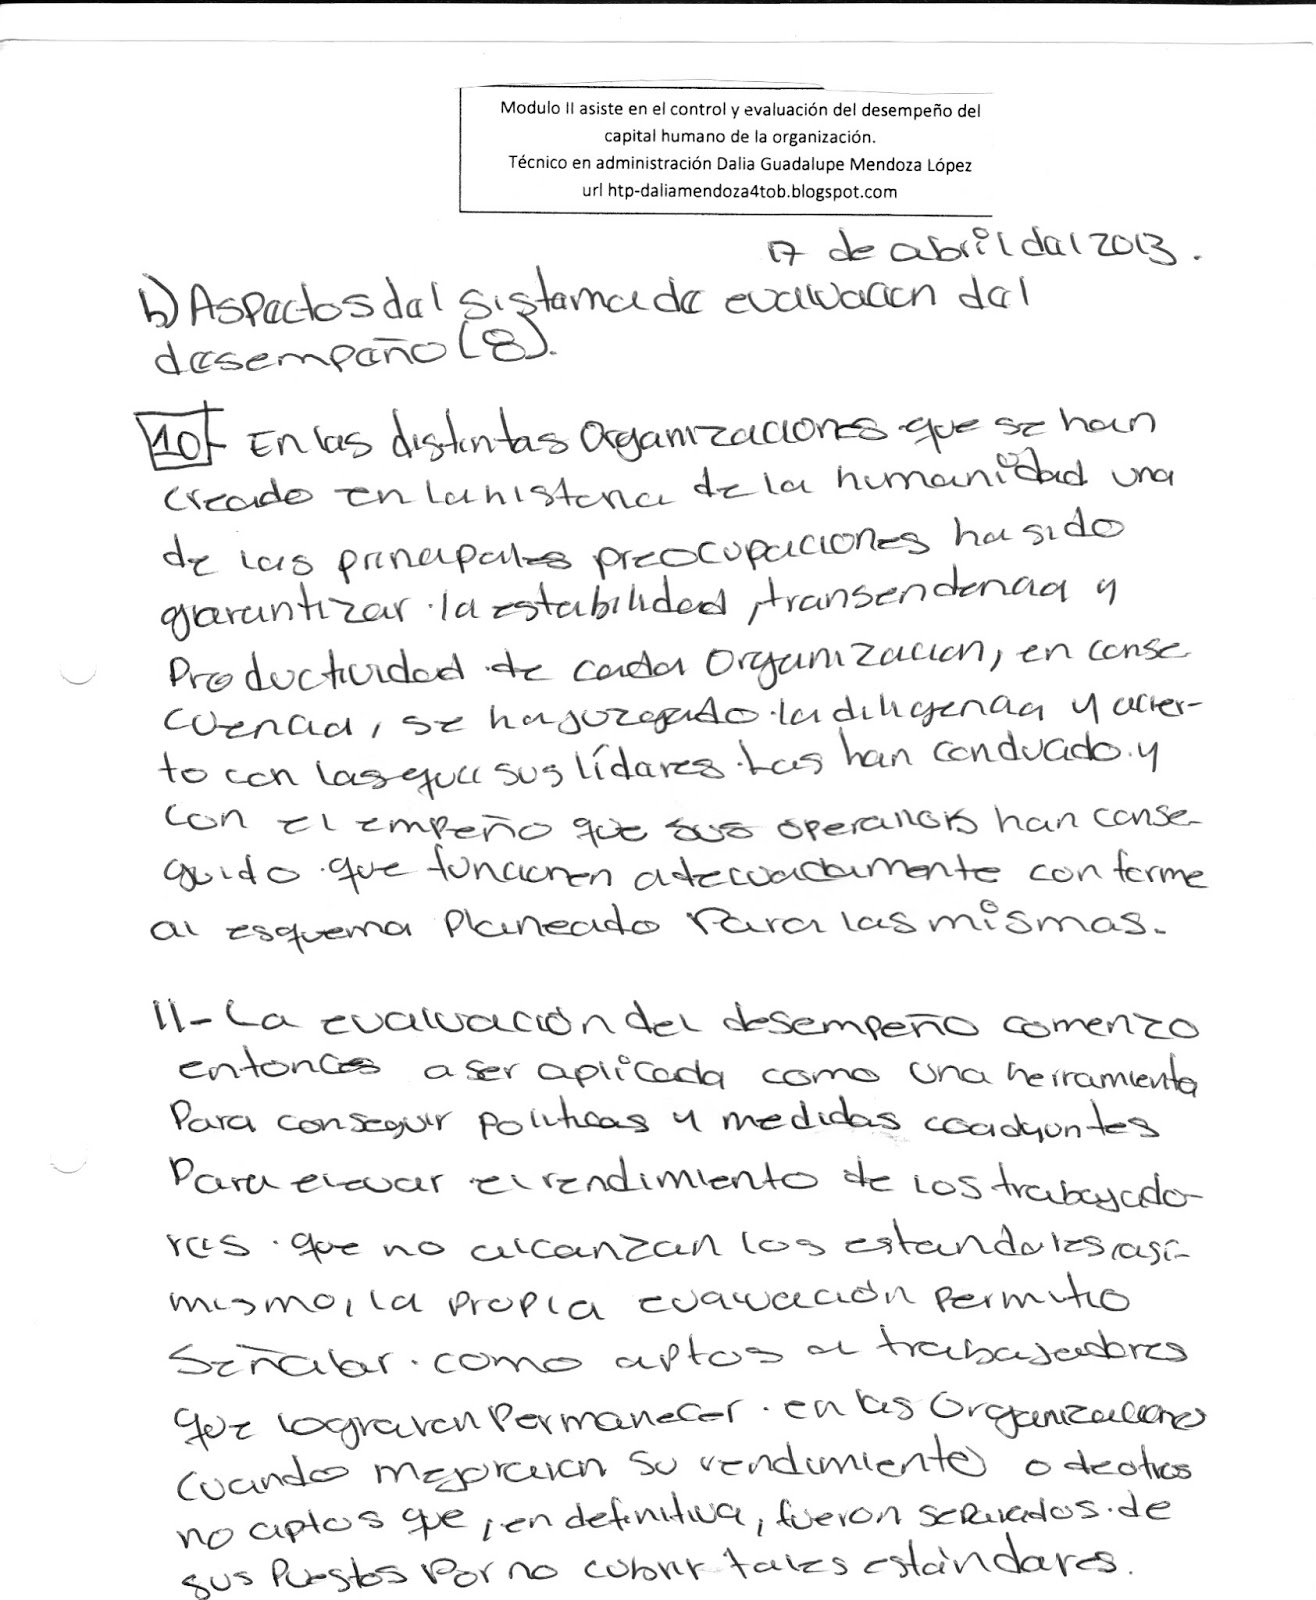 Modulo II asiste en el control y evaluación del desempeño del
capital humano de la organización.
Técnico en administración Dalia Guadalupe Mendoza López
url htp-daliamendoza4tob.blogspot.com
17 de abril del 2013.
b) Aspectos del sistema de evaluacion del
desempeño (8).
10- En las distintas Organizaciones que se han
creado en la historia de la humanidad una
de las principales preocupaciones ha sido
garantizar la estabilidad, transendencia y
Productividad de cada Organizacion, en conse
cuencia, se ha juzgado la diligencia y acier-
to con las que sus lídares las han conducado y
con el empeño que sus operarios han conse-
guido que funcionen adecuadamente conforme
al esquema Planeado Para las mismas.
11- La evaluación del desempeño comenzo
entonces a ser aplicada como una herramienta
Para conseguir politicas y medidas coadyuntes
Para elevar el rendimiento de los trabajado-
res que no alcanzan los estandares, así-
mismo, la propia evaluación permitio
Señalar como aptos a trabajadores
que lograron Permanecer en las Organizaciones
cuando mejoraron su rendimiento o de otros
no aptos que, en definitiva, fueron separados de
sus Puestos Por no cubrir tales estándares.